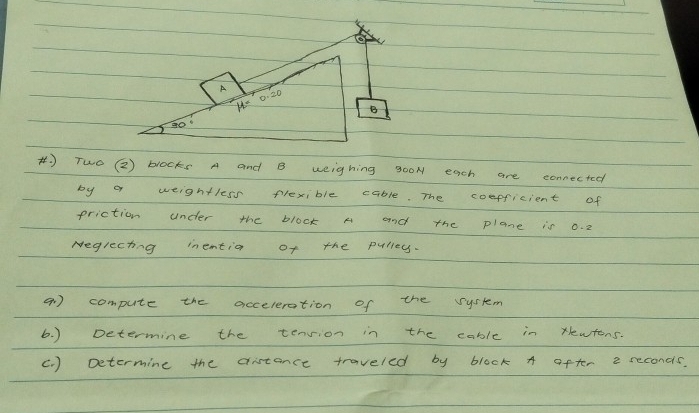 A
B
μ= 0.20
30°
#.) Two (2) blocks A and B weighing 900N each are connected
by a weightless flexible cable. The coefficient of
friction under the block A and the plane is 0.2
Neglecting inentia of the pulley.
a.) compute the acceleration of the system
b.) Determine the tension in the cable in Newtons.
c.) Determine the distance traveled by block A after 2 seconds.